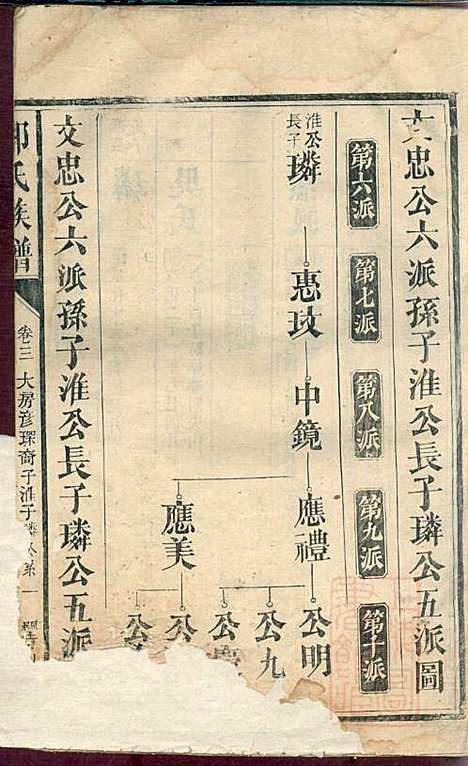 文忠公六派孫子淮公長子璘公五派圖
第六派
第七派
第八派
第九派
第十派
淮公
長子
璘
惠玟
中鏡
應禮
公明
公九
公
應美
公
公
文忠公六派孫子淮公長子璘公五派
氏族譜
卷三 大房彥琛裔子淮子